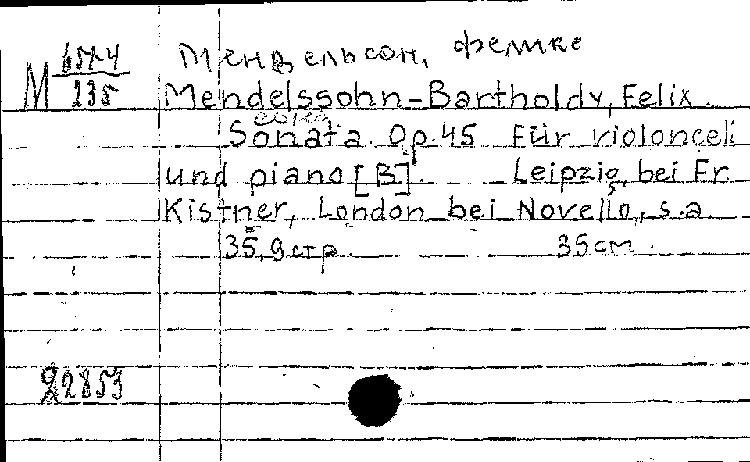 Мендельсон, Феликс
М 657-4
235
Mendelssohn-Bartholdy, Felix.
Sonata. Op. 45 Für violoncell
und piano [B]. Leipzig, bei Fr.
Kistner, London bei Novello, s.a.
35, 9 стр. 35 см.
22853